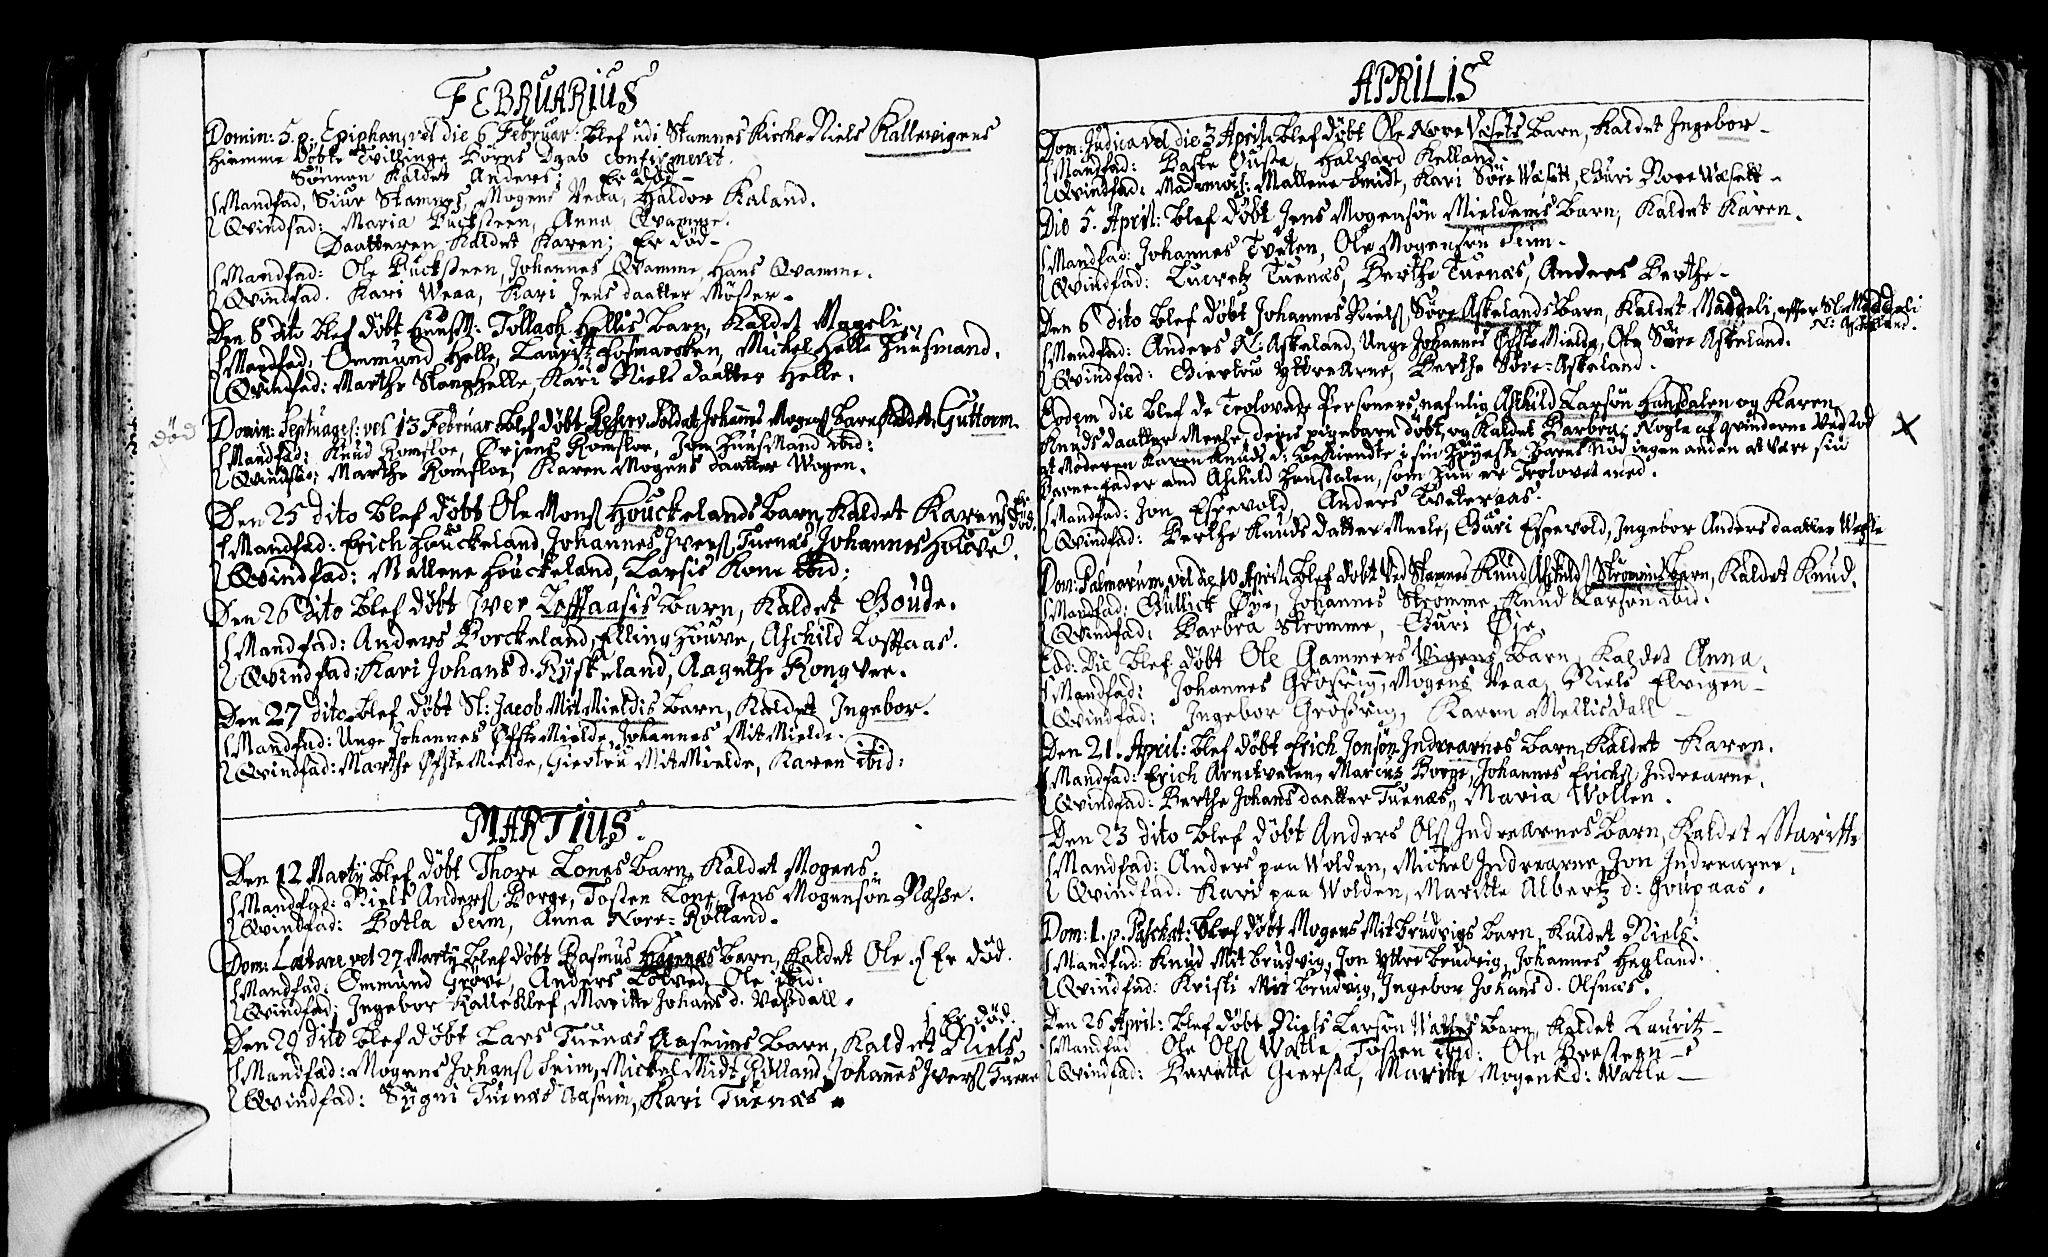 FEBRUARIUS
Domin: 5. p. Epiphan, vel die 6 Februar: blef udi Stamnes Kirche Niels Kallevigens
hiemme døbte Tvillinge Børns Daab confirmeret.
Sønnen kaldet Anders; Er død
Mandfad, Siur Stamnes, Mogens Veaa, Haldor Kaland.
Qvindfad: Maria Bucksteen, Anna Qvamme.
Daatteren kaldet Karen; Er død
Mandfad: Ole Bucksteen, Johannes Qvamme, Hans Qvamme.
Qvindfad. Kari Weaa, Kari Jens daatter Møster
Den 8 dito blef døbt Huusm: Tollach Hellis barn, kaldet Mageli
Mandfad: Ommund Helle, Lauritz Fosmarcken, Mickel Helle Huusmand.
Qvindfad: Marthe Stanghelle, Kari Niels daatter Helle.
død
Domin: Septuages: vel 13 Februar blef døbt Soldat Johannes Mogens barn kaldet Guttorm
Mandfad: Knud Romsloe, Ørjens Romsloe, Jon Huusmand ibid:
Qvindfad: Marthe Romsloe, Karen Mogens daatter Wogen.
Den 25 dito blef døbt Ole Mons Houckelands barn, kaldet Karen Er død.
Mandfad: Erich Houckeland, Johannes Ivers Tuenæs, Johannes
Qvindfad: Mallene Houckeland, Larsis Kone ibid:
Den 26 dito blef døbt Iver Lofftaasis barn, kaldet Goude.
Mandfad: Anders Borckeland, Elling Houve, Aschild Lofftaas.
Qvindfad: Kari Johans d. Ryskeland, Aagathe Rongvee.
Den 27 dito blef døbt Sl: Jacob Mit Mieldis barn, kaldet Ingebor.
Mandfad: Unge Johannes Øfste Mielde, Johannes Mit Mielde.
Qvindfad: Marthe Øfste Mielde, Giertru Mit Mielde, Karen ibid:
MARTIUS.
Den 12 Marty blef døbt Thore Lones barn, kaldet Mogens:
Mandfad: Niels Anders Borge, Tosten Lone, Jens Mogensøn Næsse.
Qvindfad: Botla Seim, Anna Nore-Rølland.
Dom: Lætare vel 27 Marty blef døbt Rasmus barn, kaldet Ole. Er død.
Mandfad: Emmund Grøve, Anders Tolved, Ole ibid:
Qvindfad: Ingebor Kalleklef, Maritte Johans d. Vassdall.
Er død.
Den 29 dito blef døbt Lars Tuenæs Aaseims barn, kaldet Niels
Mandfad: Mogens Johans Seim, Mickel Midt Rølland, Johannes Ivers Tuene
Qvindfad: Sygni Tuenæs Aaseim, Kari Tuenæs
APRILIS
Dom: Judica vel die 3 April: blef døbt Ole Nore Væsets barn, kaldet Ingebor
Mandfad: Halvard Kelland.
Qvindfad: Mademois: Mallene Smidt, Kari Søre Wæsett, Guri Nore Wæsett
Die 5. April: blef døbt Jens Mogensøn Mieldems barn, kaldet Karen.
Mandfad: Johannes Tveten, Ole Mogensøn Seim.
Qvindfad: Lucretz Tuenæs, Berthe Tuenæs, Anders Berthe
Den 6 dito blef døbt Johannes Niels Søre Askelands barn, kaldet Maddeli, effter Sl: Maddeli
N: Askeland.
Mandfad: Anders N: Askeland, Unge Johannes Øfste Mielde, Ole Søre Askeland.
Qvindfad: Giertru Yttre Arne, Berthe Søre-Askeland.
Eodem die blef de Trolovede Personers, nafnlig Aschild Larsøn Hansdalen og Karen
Knuds daatter Meele, deris pigebarn døbt, og kaldet Barbra; Nogle af qvinderne Ved Tod
at Moderen Karen Knuds d: bekiendte i sin Høyeste Barns Nød ingen anden at være sin
Barnefader end Aschild Hansdalen, som hun er Trolovet med.
Mandfad: Jon Espevold, Anders Tveteraas.
Qvindfad: Berthe Knuds datter Meele, Guri Espevold, Ingebor Anders daatter
Dom: Palmarum, vel die 10 April: blef døbt ved Stamnes Knud Aschilds Strømmes barn, kaldet Knud.
Mandfad: Gullick Øye, Johannes Strømme, Knud Larsøn ibid.
Qvindfad: Barbra Strømme, Guri Øye
Eod: Die blef døbt Ole Gammers Vigens barn, kaldet Anna.
Mandfad: Johannes Grøsvig, Mogens Veaa, Niels Elvigen
Qvindfad: Ingebor Grøsvig, Karen Mellisdall
Den 21. April: blef døbt Erich Jonsøn Indrearnes barn, kaldet Karen.
Mandfad: Erich Arnetveten, Marcus Borge, Johannes Erichs Indrearne.
Qvindfad: Berthe Johans daatter Tuenæs, Maria Wollen.
Den 23 dito blef døbt Anders Ols Indrearnes barn, kaldet Maritte
Mandfad: Anders paa Wolden, Mickel Indrearne, Jon Indrearne.
Qvindfad: Kari paa Wolden, Maritte Albertz d: Goupaas.
Dom: 1. p. Paschat: blef døbt Mogens Mit Brudvigs barn, kaldet Niels.
Mandfad: Knud Mit Brudvig, Jon Yttre Brudvig, Johannes Hægland.
Qvindfad: Kristi Mit Brudvig, Ingebor Johans d. Olsnæs.
Den 26 April: blef døbt Niels Larsøn Watles barn, kaldet Lauritz
Mandfad Ole Ols Watle, Tosten ibid: Ole
Qvindfad: Beritte Gierstad, Maritte Mogens d: Watle